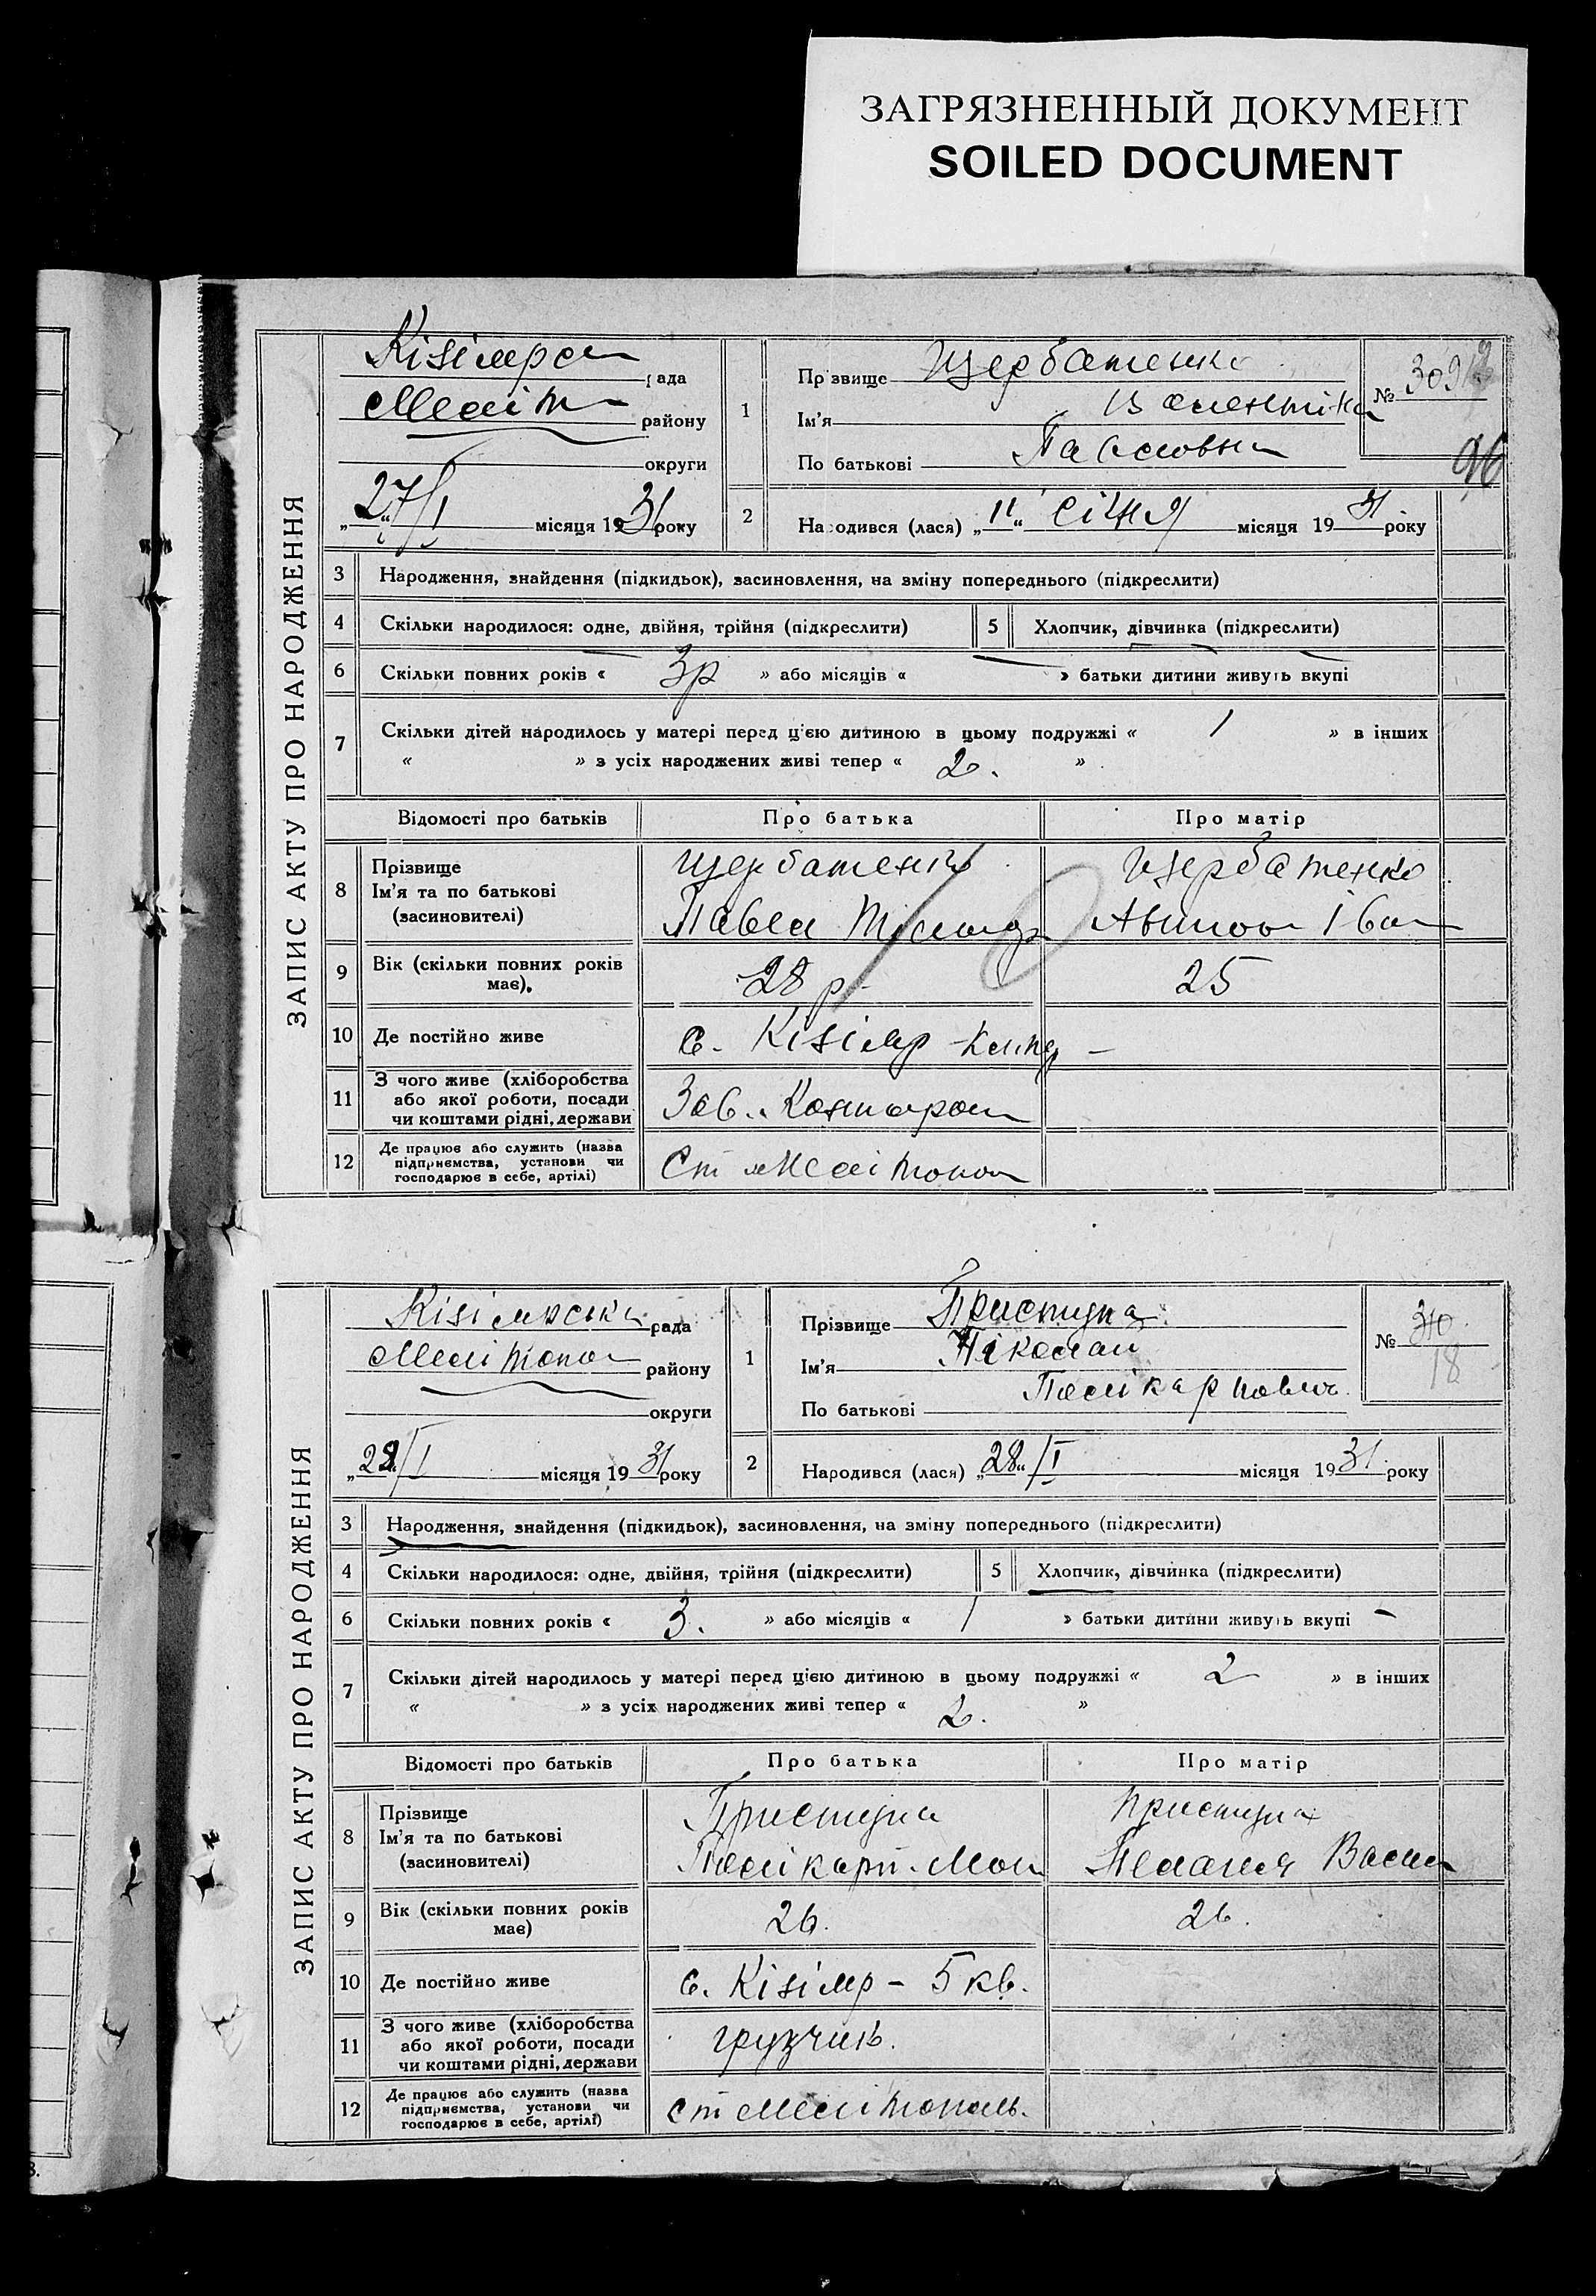 ЗАГРЯЗНЕННЫЙ ДОКУМЕНТ
SOILED DOCUMENT
ЗАПИС АКТУ ПРО НАРОДЖЕННЯ
Кізіярсь рада
Меліт району
округи
„27/I“ місяця 1931 року
1
Прізвище Щербатенко
Ім'я Валентіна
По батькові Павловна
№ 309
96
2
Народився (лася) „11“ січня місяця 1931 року
3 Народження, знайдення (підкидьок), засиновлення, на зміну попереднього (підкреслити)
4 Скільки народилося: одне, двійня, трійня (підкреслити) 5 Хлопчик, дівчинка (підкреслити)
6 Скільки повних років « 3р » або місяців « » батьки дитини живуть вкупі
7 Скільки дітей народилось у матері перед цією дитиною в цьому подружжі « 1 » в інших
« » з усіх народжених живі тепер « 2. »
Відомості про батьків Про батька Про матір
8 Прізвище
Ім'я та по батькові
(засновителі)
Щербатенко
Павел
Щербатенко
Іван
9 Вік (скільки повних років має). 28 р. 25
10 Де постійно живе с. Кізіяр
11 З чого живе (хліборобства
або якої роботи, посади
чи коштами рідні, держави
Зав. Конторой
12 Де працює або служить (назва
підприємства, установи чи
господарює в себе, артілі)
Ст Мелітопол
ЗАПИС АКТУ ПРО НАРОДЖЕННЯ
Кізіярська рада
Мелітопол району
округи
„28“/I місяця 1931 року
1
Прізвище Приступа
Ім'я Ніколай
По батькові Полікарпович
№ 310
18
2
Народився (лася) „28“/I місяця 1931 року
3 Народження, знайдення (підкидьок), засиновлення, на зміну попереднього (підкреслити)
4 Скільки народилося: одне, двійня, трійня (підкреслити) 5 Хлопчик, дівчинка (підкреслити)
6 Скільки повних років « 3. » або місяців « / » батьки дитини живуть вкупі –
7 Скільки дітей народилось у матері перед цією дитиною в цьому подружжі « 2 » в інших
« » з усіх народжених живі тепер « 2. »
Відомості про батьків Про батька Про матір
8 Прізвище
Ім'я та по батькові
(засиновителі)
Приступа
Полікарп
Приступа
Пелагия Васил
9 Вік (скільки повних років має) 26. 26.
10 Де постійно живе с. Кізіяр – 5 кв.
11 З чого живе (хліборобства
або якої роботи, посади
чи коштами рідні, держави
грузчик.
12 Де працює або служить (назва
підприємства, установи чи
господарює в себе, артілі)
ст Мелітополь.